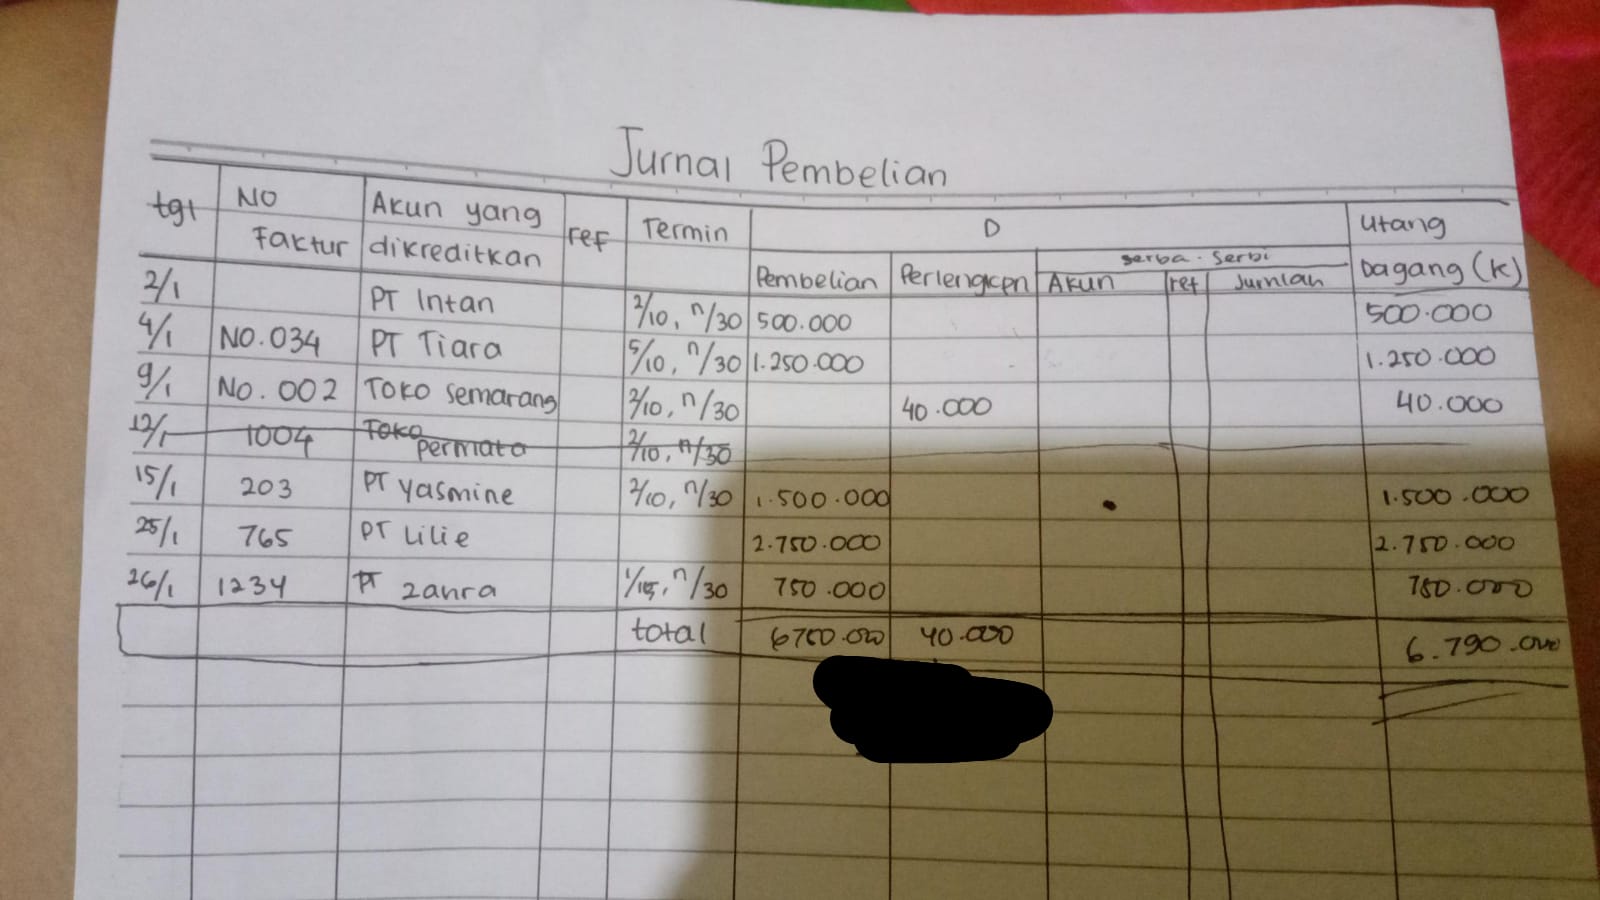 Jurnal Pembelian
tgl | No Faktur | Akun yang dikreditkan | ref | Termin | D | Utang Dagang (K)
Pembelian | Perlengkpn | serba-serbi
Akun | ref | Jumlah
2/1 | PT Intan | 2/10, n/30 | 500.000 | 500.000
4/1 | NO.034 | PT Tiara | 5/10, n/30 | 1.250.000 | 1.250.000
9/1 | No. 002 | TOKO Semarang | 2/10, n/30 | 40.000 | 40.000
12/1 | 1004 | Toko permata | 2/10, n/30
15/1 | 203 | PT Yasmine | 2/10, n/30 | 1.500.000 | 1.500.000
25/1 | 765 | PT Lilie | 2.750.000 | 2.750.000
26/1 | 1234 | PT Zahra | 1/15, n/30 | 750.000 | 750.000
total | 6750.000 | 40.000 | 6.790.000